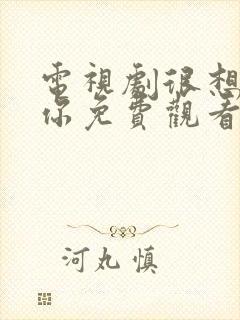 電視劇很想
你免費觀看
河丸慎